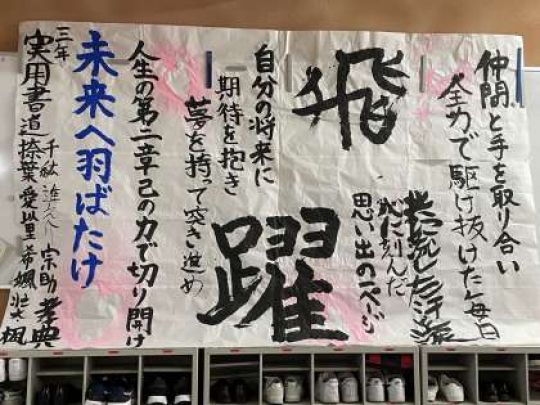 仲間と手を取り合い
全力で駆け抜けた毎日
共に流した汗
心に刻んだ
思い出の一ページ
飛躍
自分の将来に
期待を抱き
夢を持って突き進め
人生の第二章己の力で切り開け
未来へ羽ばたけ
三年
実用書道
宗助 孝典
捺葉 愛 里 希颯 壮太 楓